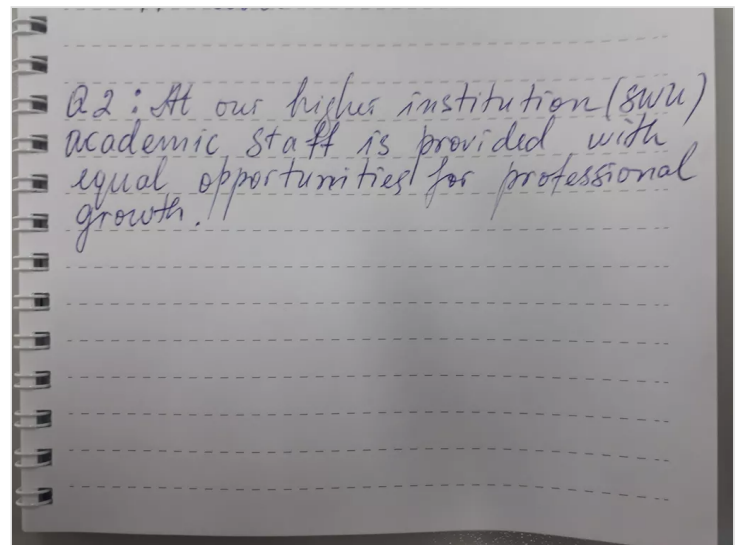 Q2: At our higher institution (SWU)
academic staff is provided with
equal opportunities for professional
growth.